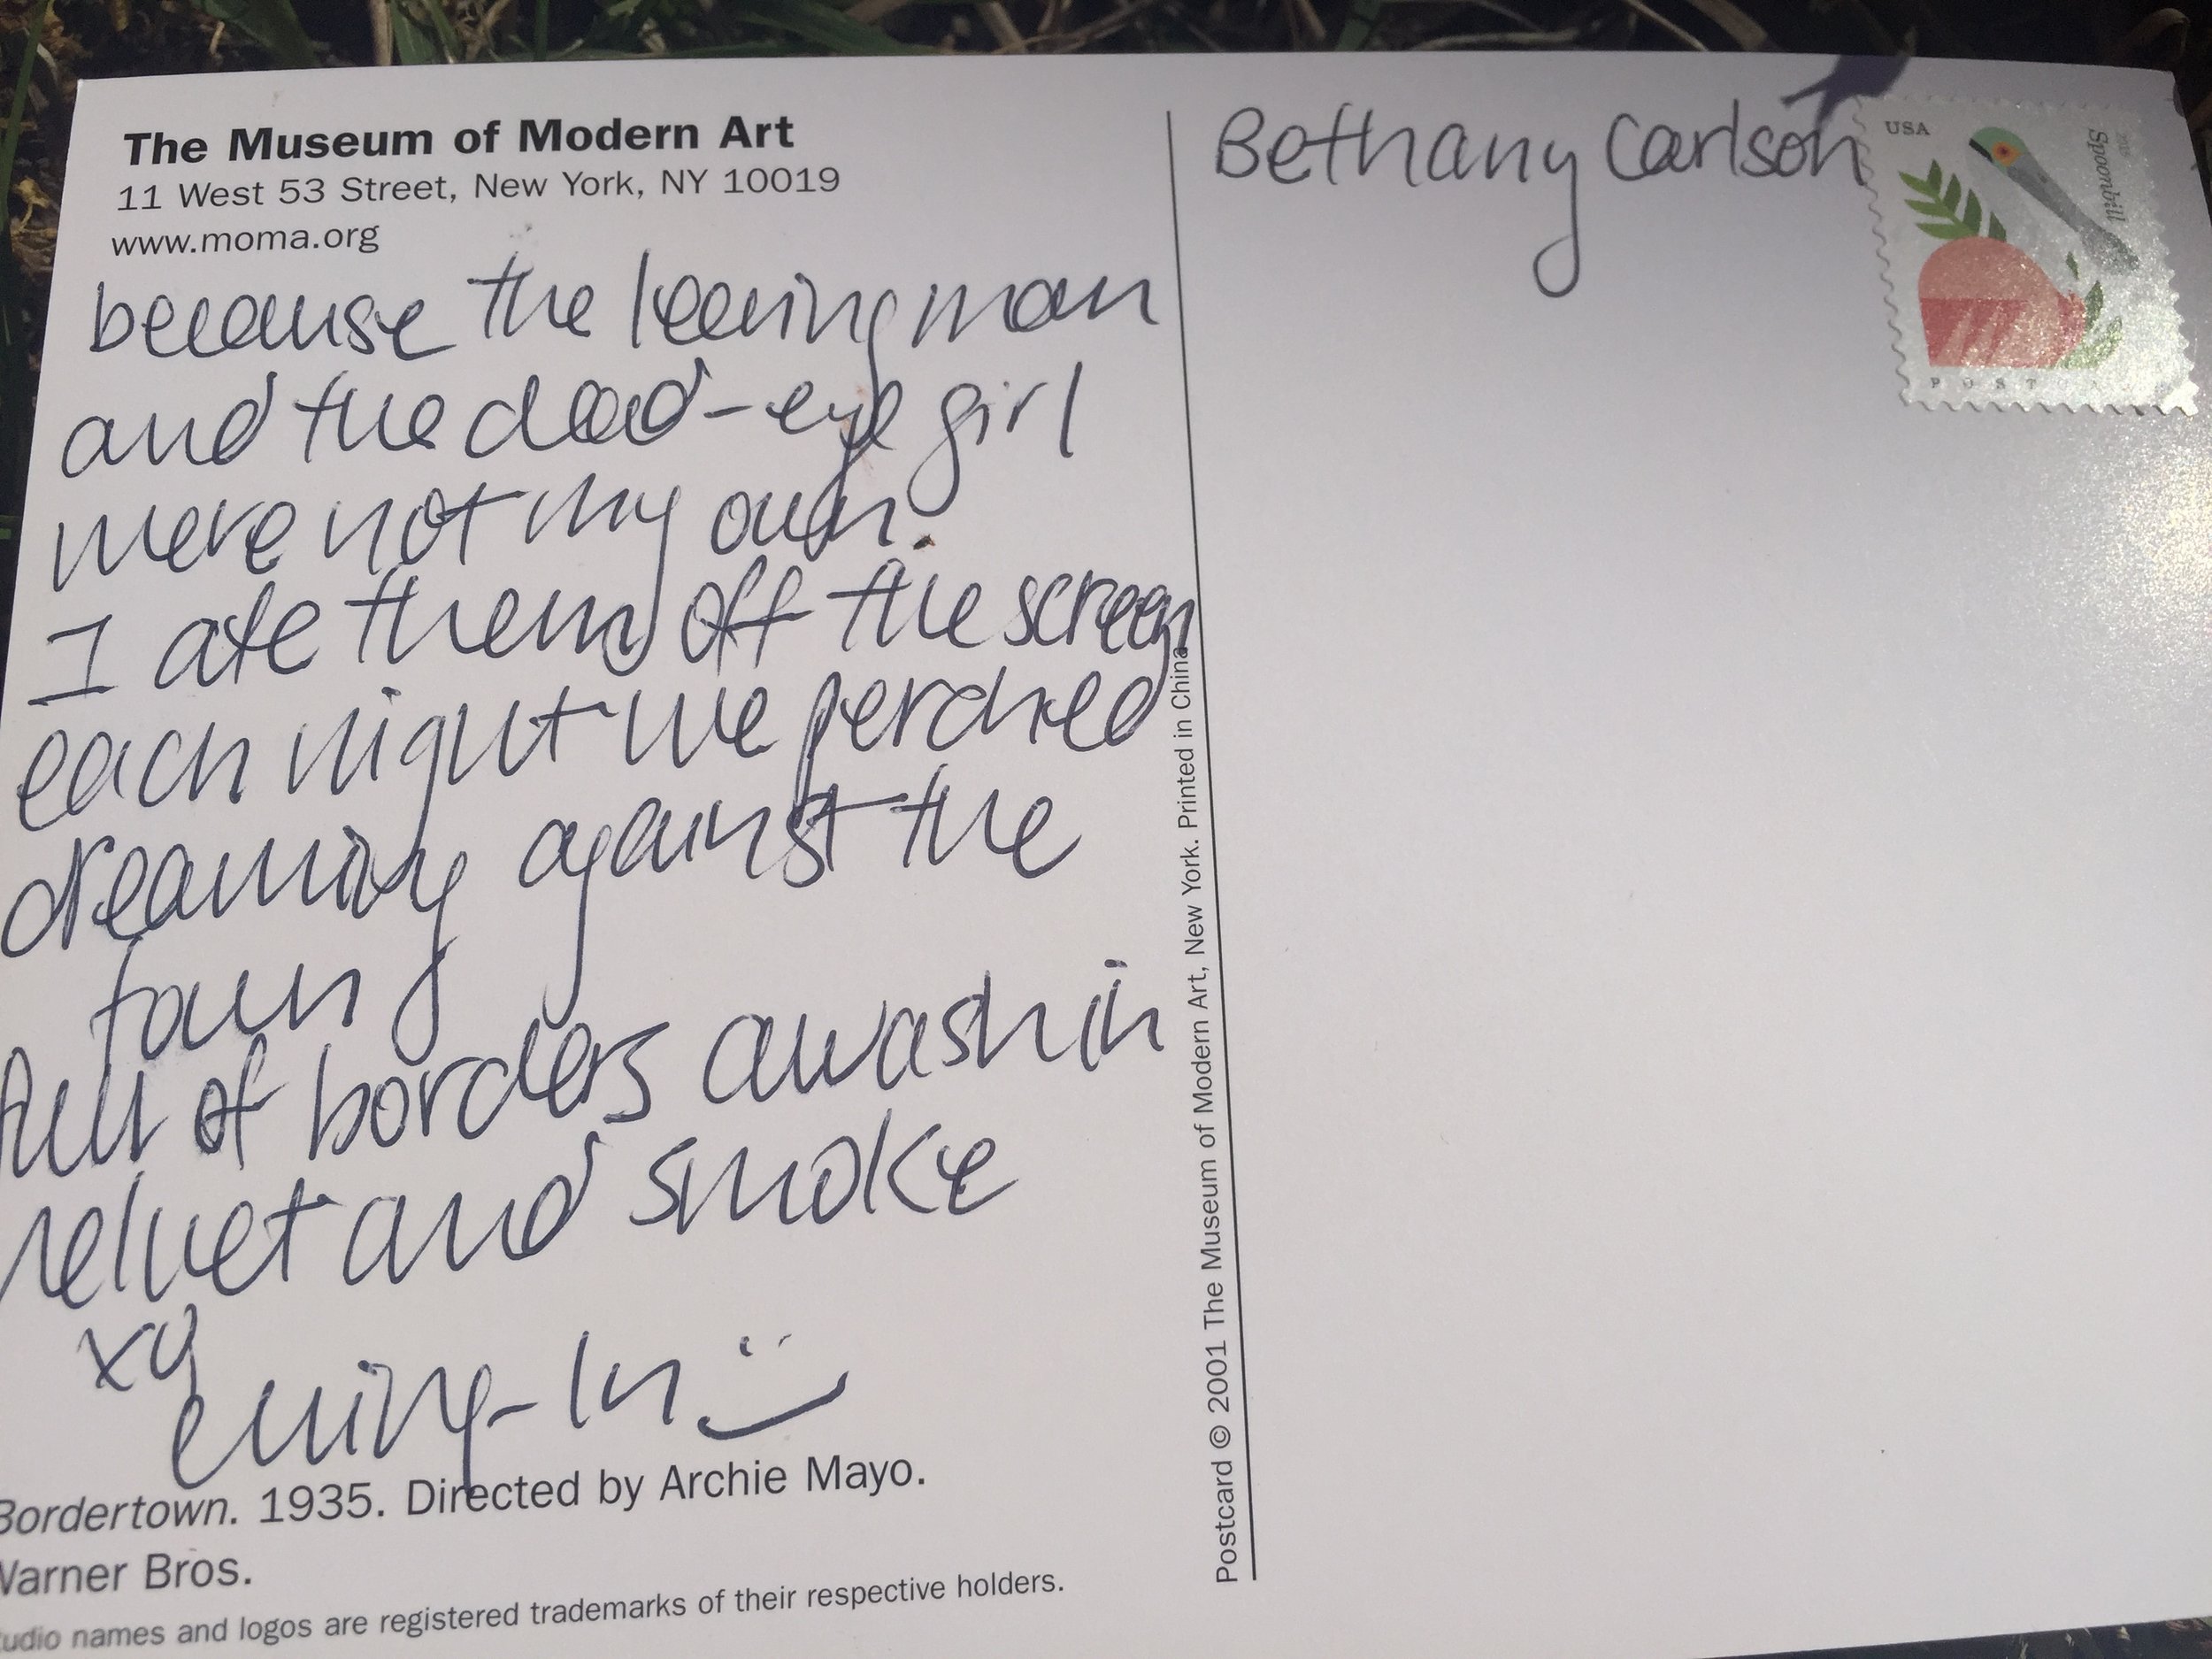 The Museum of Modern Art
11 West 53 Street, New York, NY 10019
www.moma.org
because the leering man
and the dead-eye girl
were not my own.
I ate them off the screen
each night we perched
dreaming against the
town
full of borders awash in
velvet and smoke
xo
Bordertown. 1935. Directed by Archie Mayo.
Warner Bros.
names and logos are registered trademarks of their respective holders.
Postcard © 2001 The Museum of Modern Art, New York. Printed in China
Bethany Carlson
USA
Spoonbill